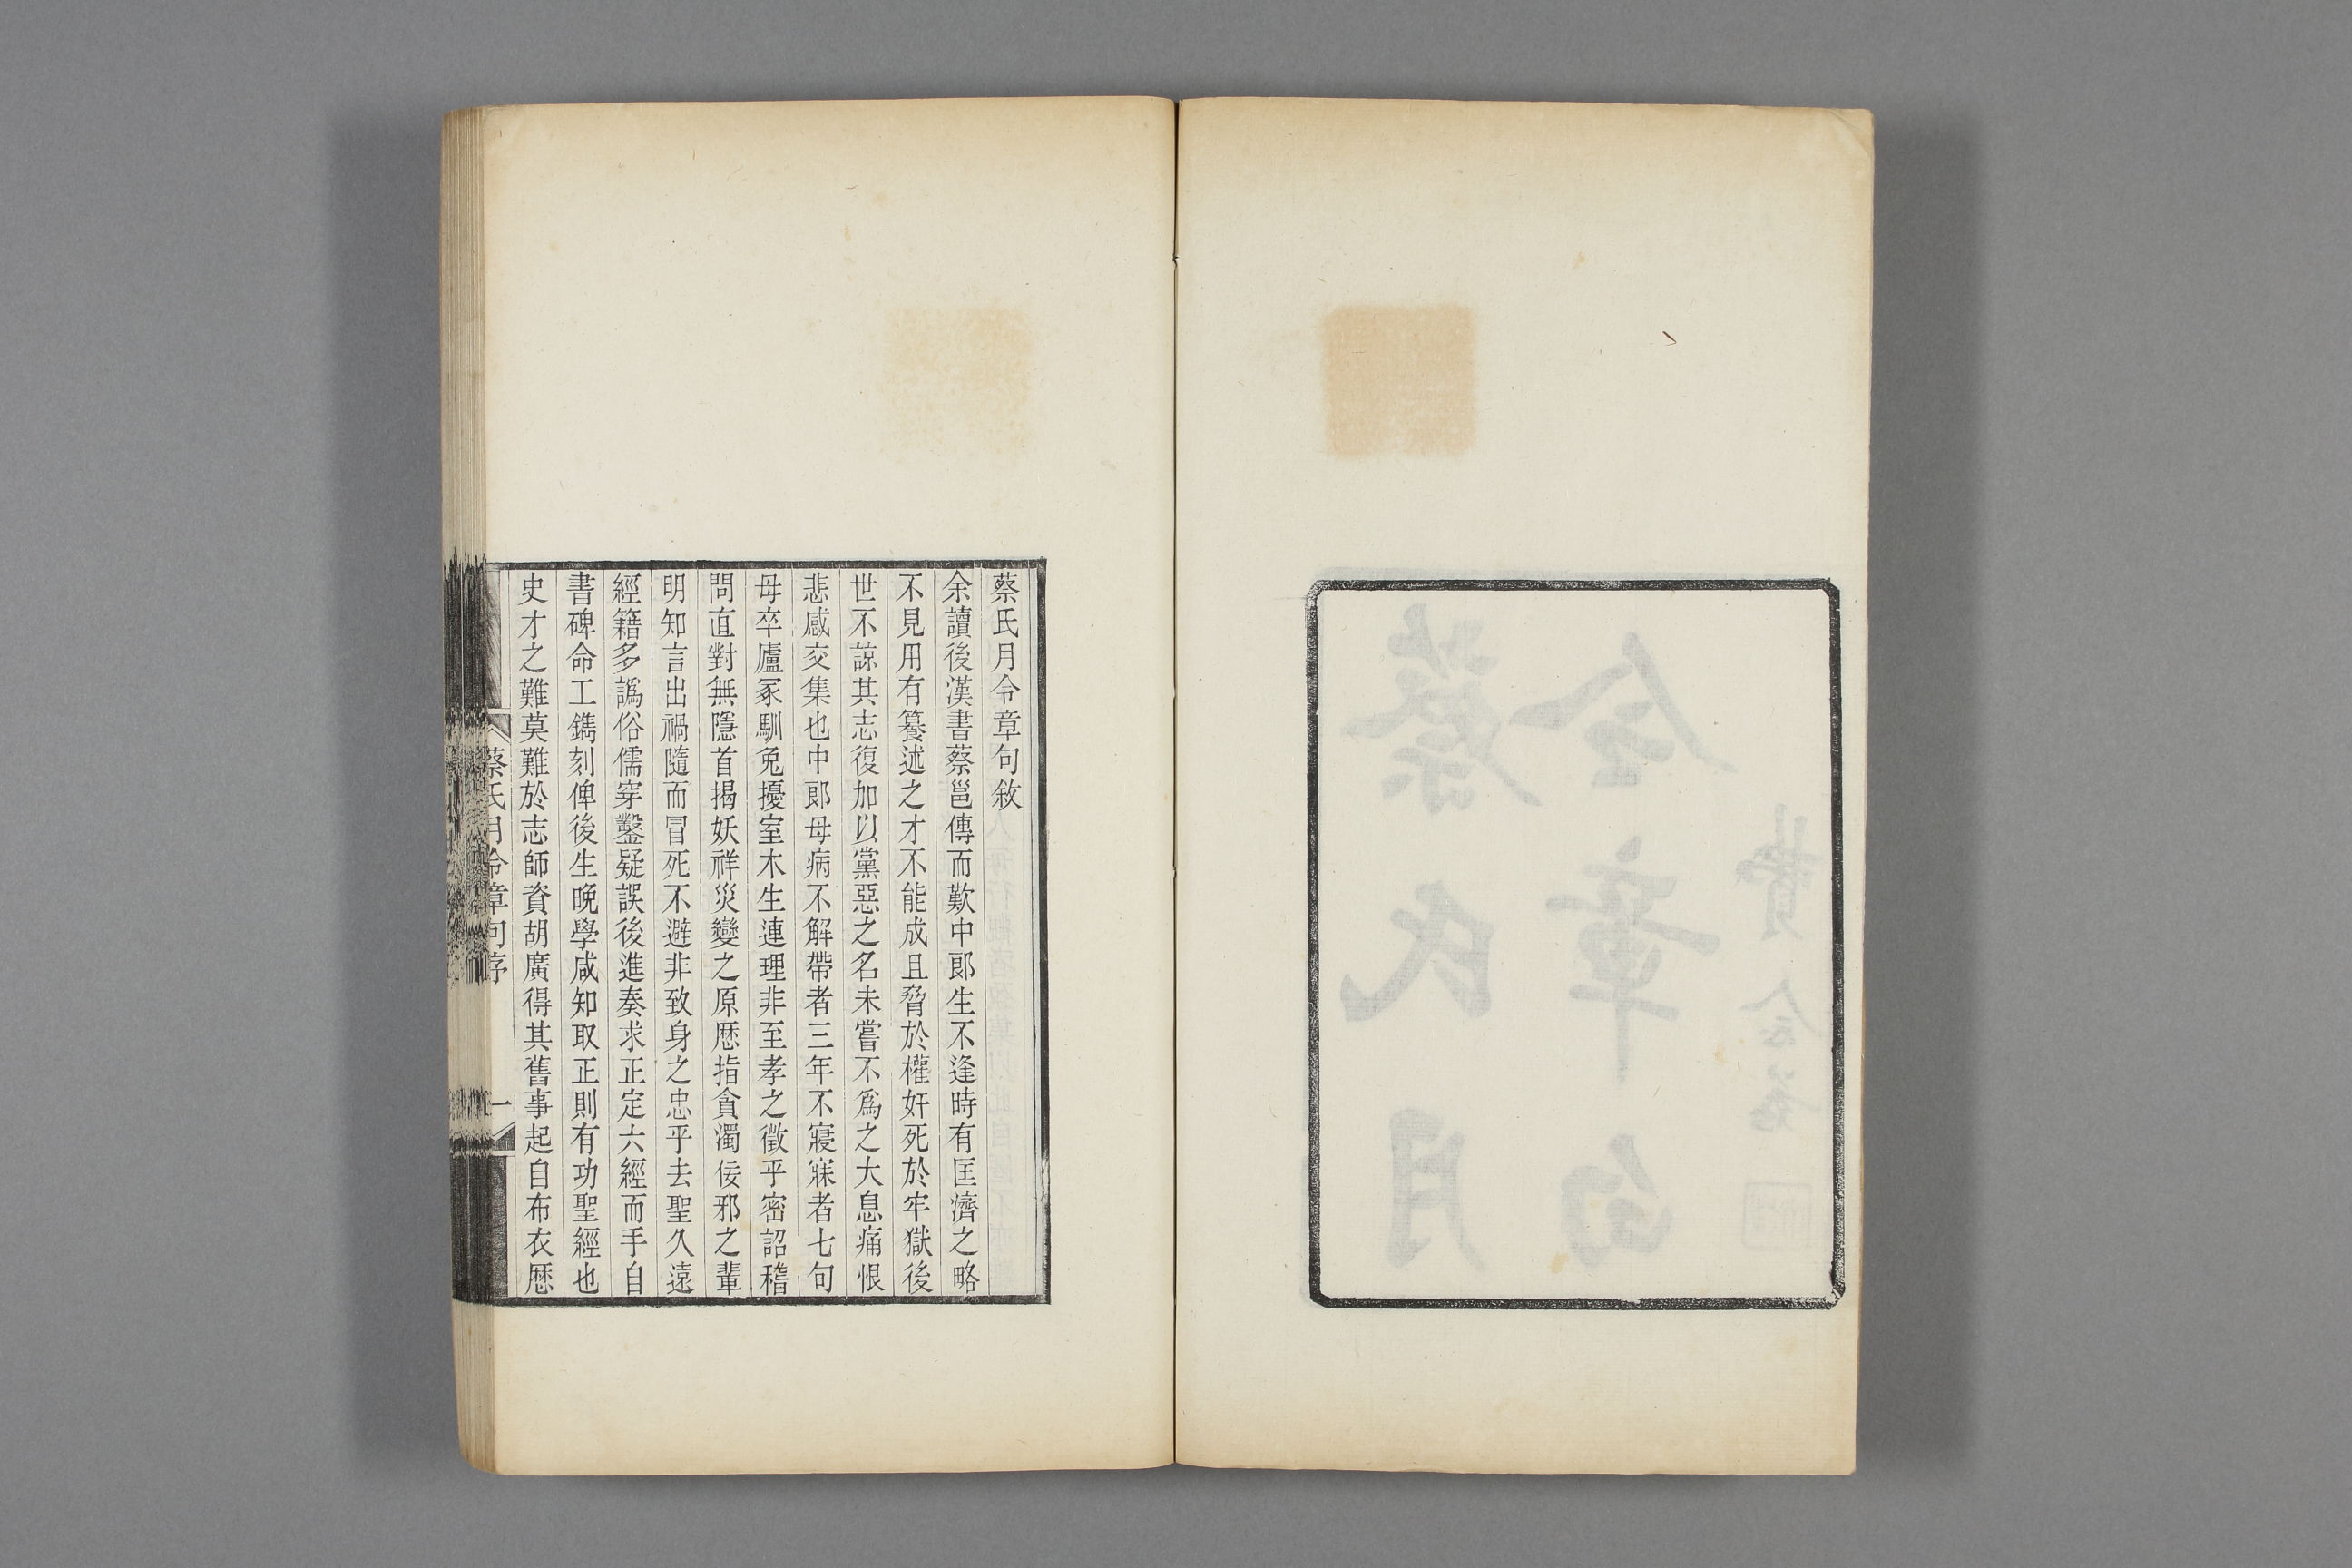 蔡氏月令章句
蔡氏月令章句敘
余讀後漢書蔡邕傳而歎中郎生不逢時有匡濟之略
不見用有籑述之才不能成且脅於權奸死於牢獄後
世不諒其志復加以黨惡之名未嘗不爲之大息痛恨
悲感交集也中郎母病不解帶者三年不寢寐者七旬
母卒廬冢馴兔擾室木生連理非至孝之徵乎密詔稽
問直對無隱首揭妖祥災變之原歷指貪濁佞邪之輩
明知言出禍隨而冒死不避非致身之忠乎去聖久遠
經籍多譌俗儒穿鑿疑誤後進奏求正定六經而手自
書碑命工鐫刻俾後生晚學咸知取正則有功聖經也
史才之難莫難於志師資胡廣得其舊事起自布衣歷
蔡氏月令章句序
一